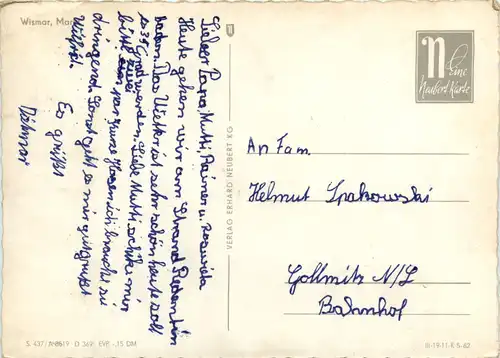 Wismar, Mar
Lieber Papa, Mutti, Rainer u. Roswita
Heute gehen wir am Strand Redentin
baden. Das Wetter ist sehr schön heute soll
es 35 Grad werden. Liebe Mutti schicke mir
bitte ein par kurze Hosen ich brauche sie
dringend. Sonst geht es mir gut
Es grüßt
Dietmar
VERLAG ERHARD NEUBERT KG
n Eine
Neubert Karte
An Fam.
Helmut
Gollmitz N/L
Bahnhof
S 437/A 8619 D 369 EVP -,15 DM
III-19-11-K 5-62